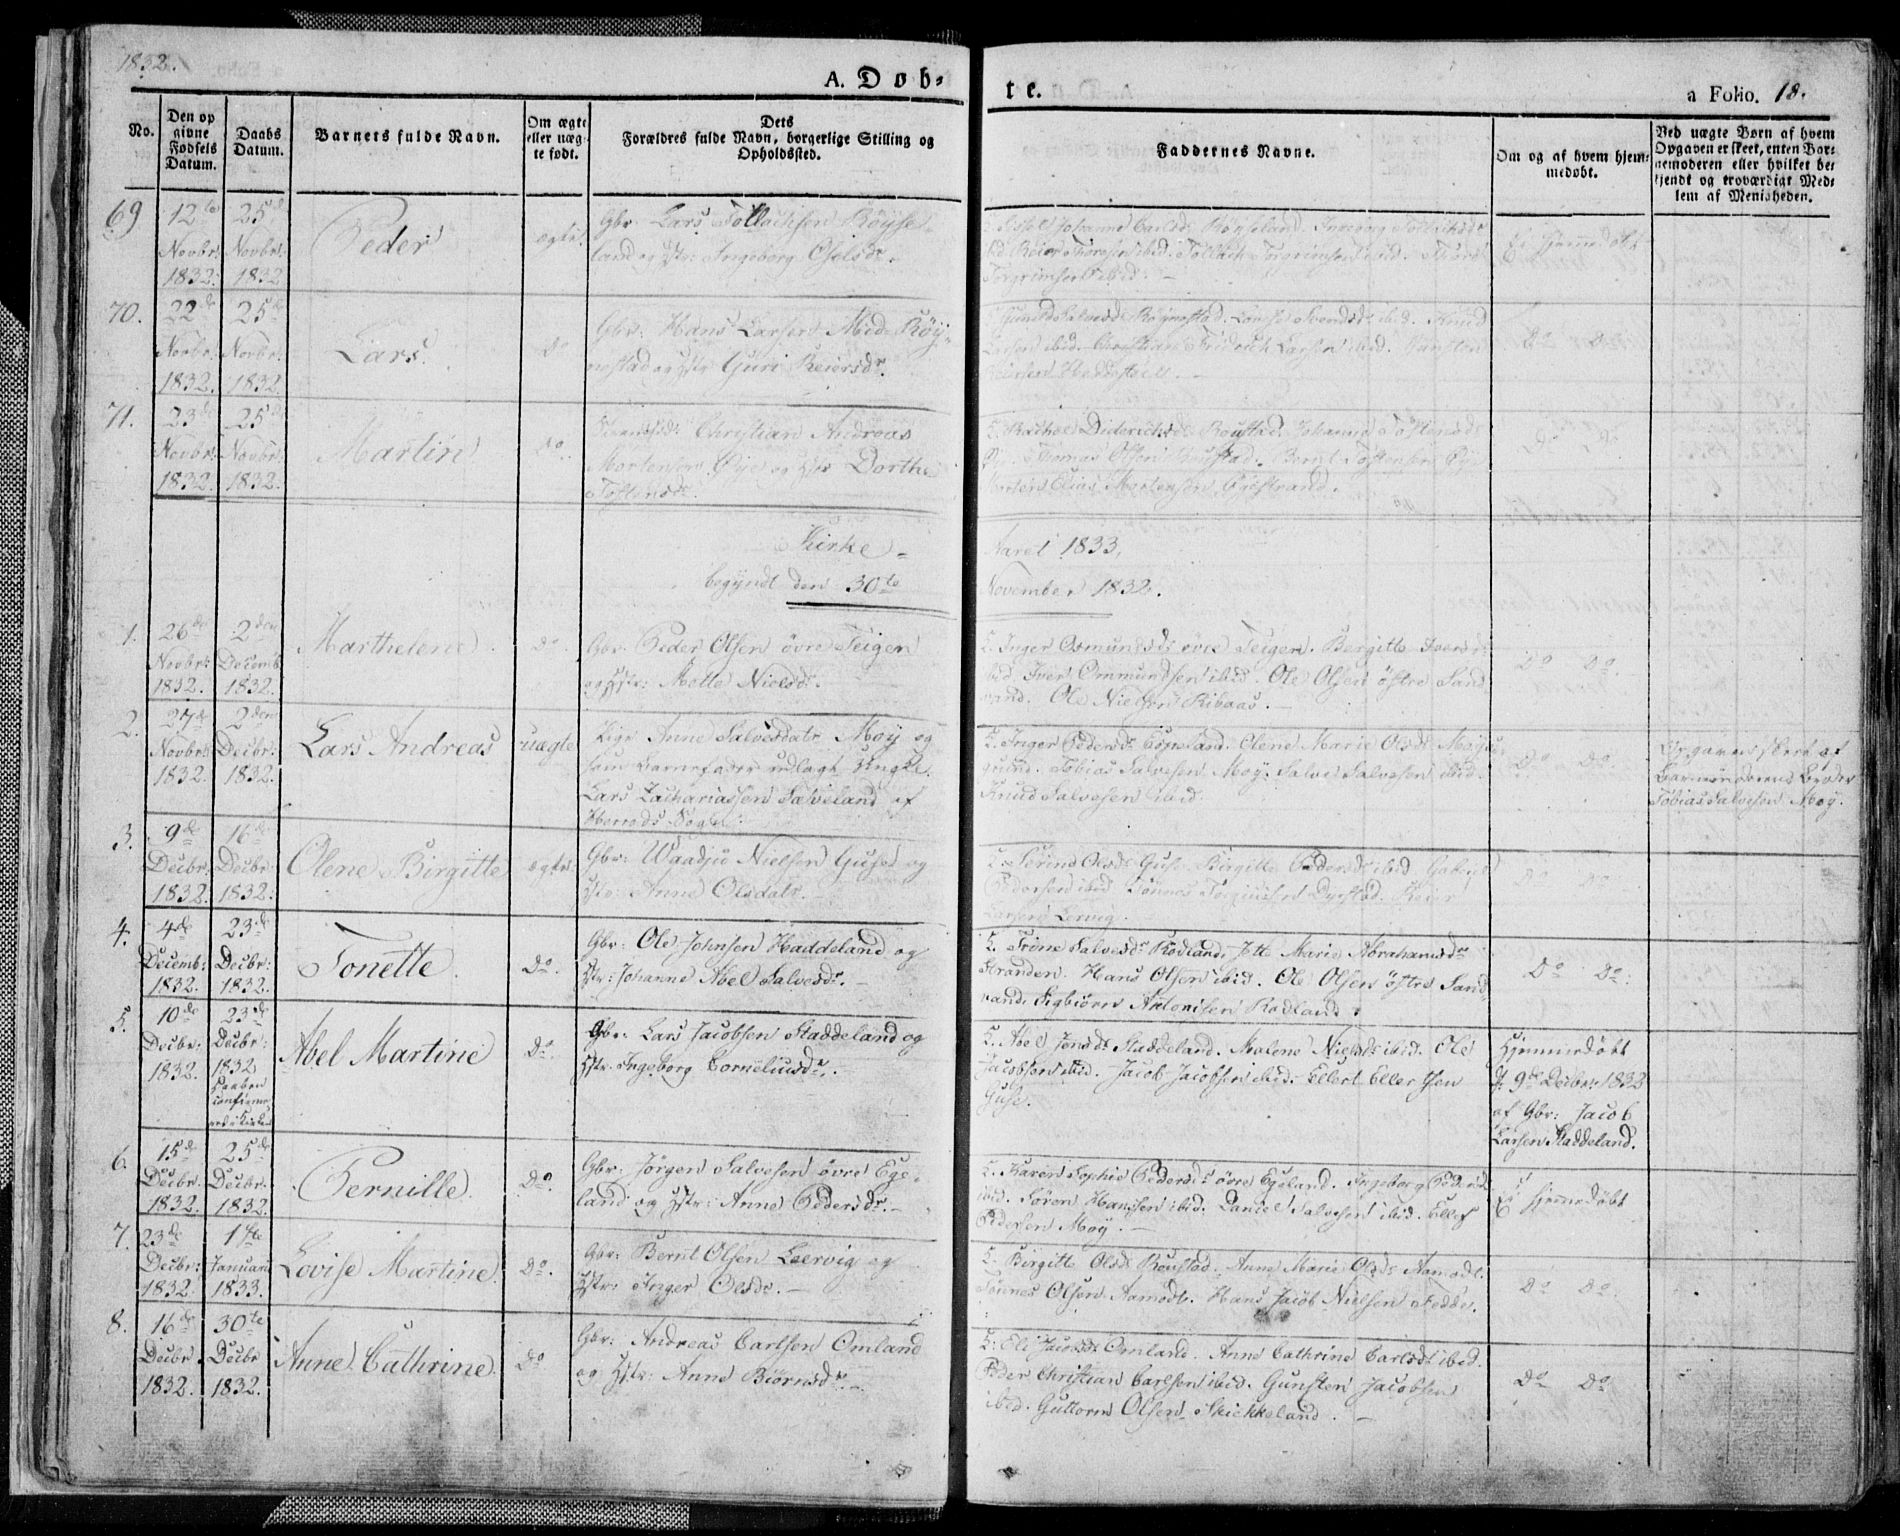 1832.
A. Døb-
te.
a Folio. 18.
No.
Den op
givne
Fødsels
Datum.
Daabs
Datum.
Barnets fulde Navn.
Om ægte
eller uæg-
te født.
Dets
Forældres fulde Navn, borgerlige Stilling og
Opholdssted.
Faddernes Navne.
Om og af hvem hjem-
medøbt.
Ved uægte Børn af hvem
Opgaven er skeet, enten Bar-
nemoderen eller hvilket be-
kjendt og troværdigt Med-
lem af Menigheden.
69
12te
Novbr:
1832.
25de
Novbr:
1832
Peder
ægte.
Gbr. Lars Tollachsen Røyse-
land og Hstr: Ingeborg
Johanne
ibid. Reier ibid. Tollach Torgrimsen ibid.
Torgrimsen ibid. -
Ei hjemmedøbt
70.
22de
Novbr:
1832.
25de
Novbr:
1832.
Lars.
Do
Gbr. Hans Larsen Mid-Røy-
nestad og Hstr Guri Reiersdr.
Salvesdr Røynestad. ibid. Knud
Larsen ibid. Christian Fridrich Larsen ibid.
Do Do
71.
23de
Novbr:
1832.
25de
Novbr:
1832.
Martin
Do.
Christian Andreas
Mortensen Øye og Hstr Dorthe
Tostensdr.
5. Rachel Diderichsdr Roustad. Johanne Tostensdr
Øye. Thomas Olsen Roustad. Bernt Tostensen Øye
Morten Elias Mortensen
Do Do
Kirke-
Aaret 1833,
begyndt den 30te
November 1832.
1.
26de
Novbr:
1832.
2den
Decemb.
1832.
Marthelene.
Do.
Gbr. Peder Olsen øvre Teigen
og Hstr: Mette Nielsdr.
5. Inger Osmundsdr øvre Teigen. Bergitte Iversdr
ibid. Iver Ommundsen ibid. Ole Olsen østre Sand
vand. Ole Nielsen Ribaas. -
Do Do.
2.
27de
Novbr:
1832.
2den
Decbr:
1832.
Lars Andreas
uægte
Pige Anne Salvesdatr Moy og
som Barnefader udlagt Ungk.
Lars Zachariassen Salveland af
Herreds Sogn.
5. Inger Pedersdr Egeland. Elene Marie Olsdr Moys
grund. Tobias Salvesen Moy. Salve Salvesen ibid.
Knud Salvesen ibid.
Do Do.
Opgaven skeet af
Barnemoderens Broder
Tobias Salvesen Moy.
3.
9de
Decbr:
1832.
16de
Decbr
1832.
Olene Birgitte
ægte.
Gbr: Waadjei Nielsen Guse og
Hstr: Anne Olsdatr.
5. Serine Olsdr Guse. Birgitte Pedersdr ibid. Gabriel
Pedersen ibid. Tønnes Dyrstad. Reier
Larsen Lervig.
Do Do.
4.
4de
Decemb:
1832.
23de
Decbr:
1832.
Tonette.
Do.
Gbr: Ole Johnsen Haddeland og
Hstr: Johanne Abel Salvesdr. -
5. Trine Salvesdr Rødland. Marie Abrahamsdr
Stranden. Hans Olsen ibid. Ole Olsen østre Sand
vand. Sigbiørn Antonisen Rødland.
Do Do.
5.
10de
Decbr:
1832.
23de
Decbr:
1832
Daaben
confirme-
ret i Kirken
Abel Martine
Do.
Gbr: Lars Jacobsen Staddeland og
Hstr. Ingeborg Corneliusdr.
5. Abel Jensdr Staddeland. Malene Nielsdr ibid. Ole
Jacobsen ibid. Jacob Jacobsen ibid. Ellert Ellertsen
Guse.
Hjemmedøbt
d. 9de Decbr: 1832
af Gbr: Jacob
Larsen Staddeland.
6.
15de
Decbr.
1832.
25de
Decbr.
1832.
Pernille.
Do.
Gbr: Jørgen Salvesen øvre Ege-
land og Hstr: Anne Pedersdr.
5. Karen Sophie Pedersdr øvre Egeland. Ingeborg Pedersdr
ibid. Søren Hansen ibid. Daniel Salvesen ibid. Ellef
Pedersen Moy. -
Ei hjemedøbt
7.
23de
Decbr:
1832.
1ste
Januari
1833.
Lovise Martine.
Do.
Gbr: Bernt Olsen Leervig og
Hstr: Inger Olsdr. -
5. Birgitte Olsdr Roustad. Anne Marie Olsdr Aamodt.
Tønnes Olsen Aamodt. Hans Jacob Nielsen Fedde.
Do Do
8.
16de
Decbr
1832.
30te
Decbr
1832.
Anne Cathrine
Do
Gbr: Andreas Carlsen Omland
og Hstr: Anne Biørnsdr. -
5. Eli Jacobsdr Omland. Anne Cathrine Carlsdr ibid.
Peder Christian Carlsen ibid. Gunsten Jacobsen
ibid. Guttorm Olsen Skiekkeland. -
Do Do